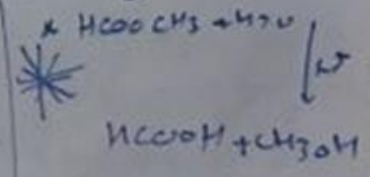 * HCOOCH3 + H2O
HCOOH + CH3OH